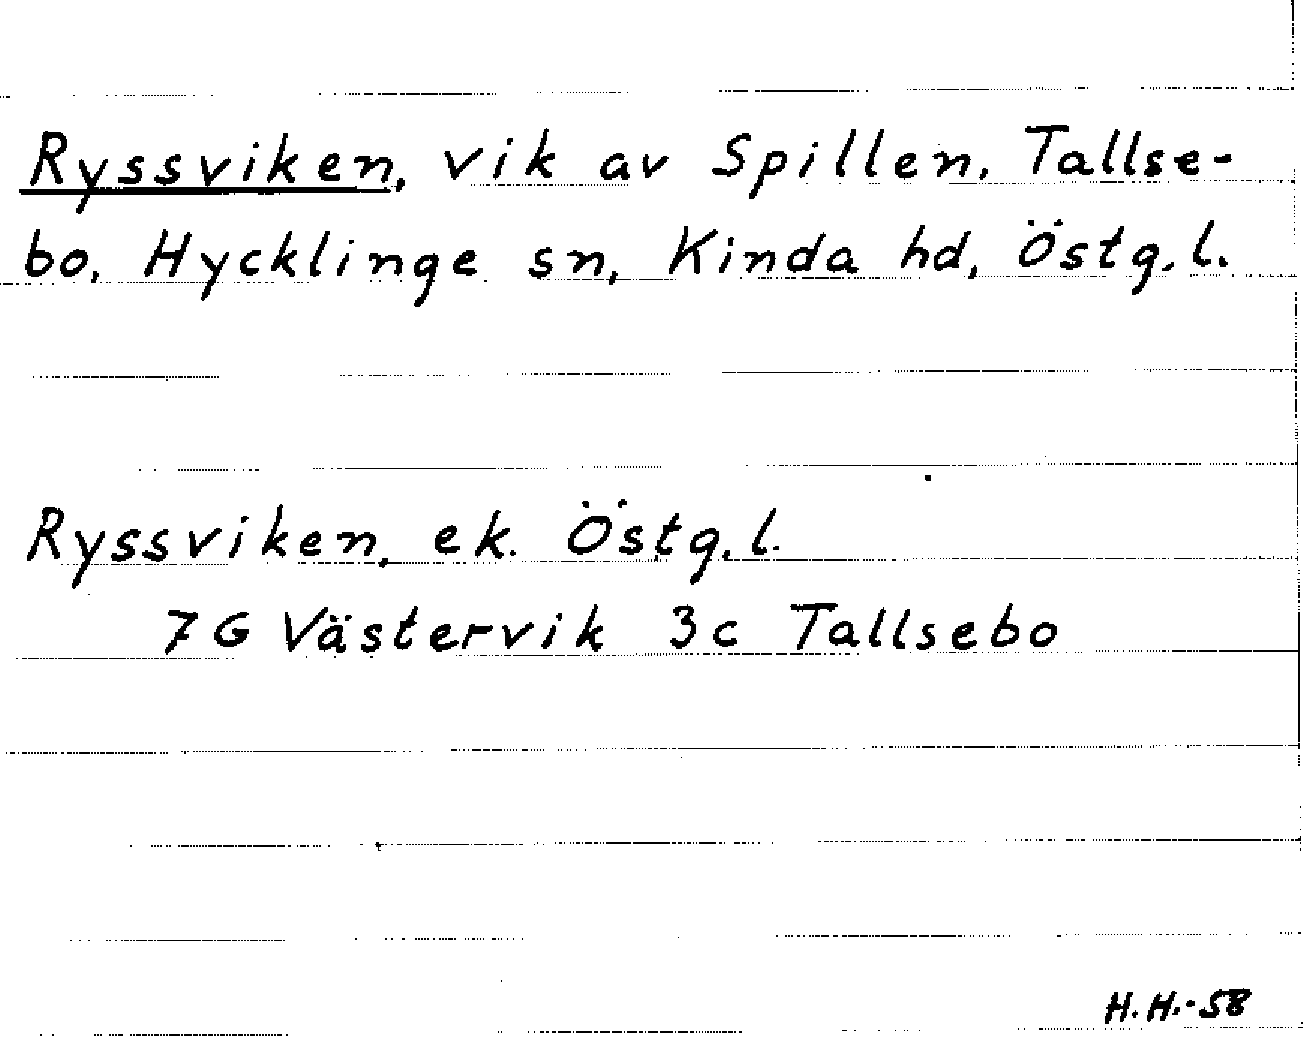 Ryssviken, vik av Spillen, Tallse-
bo, Hycklinge sn, Kinda hd, Östg.l.
Ryssviken, ek. Östg.l.
7G Västervik 3c Tallsebo
H.H.-58